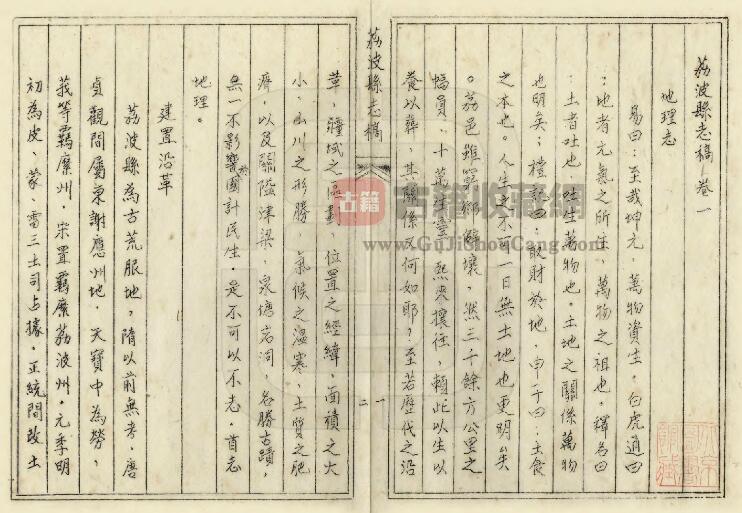 荔波縣志稿卷一
地理志
易曰：至哉坤元，萬物資生。白虎通曰
：地者元氣之所生，萬物之祖也。釋名曰
：土者吐也，吐生萬物也。土地之關係萬物
也明矣；禮記曰：取財於地，申子曰：土食
之本也。人生之不可一日無土地也更明矣
。荔邑雖窮鄉僻壤，然三千餘方公里之
幅員，十萬生靈，熙來攘往，賴此以生以
養以葬，其關係又何如耶？至若歷代之沿
荔波縣志稿
一
二
革，疆域之區劃，位置之經緯，面積之大
小，山川之形勝，氣候之溫寒，土質之肥
瘠，以及關隘津梁，泉塘岩洞，名勝古蹟，
無一不影響於國計民生，是不可以不志。首志
地理。
建置沿革
荔波縣為古荒服地，隋以前無考，唐
貞觀間屬東謝應州地，天寶中為勞、
莪等羈縻州，宋置羈縻荔波州，元季明
初為皮、蒙、雷三土司占據，正統間改土
古籍
古籍收藏網
www.GuJiShouCang.com